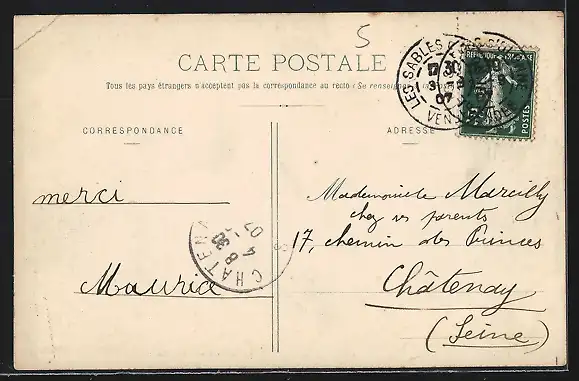 5
CARTE POSTALE
Tous les pays étrangers n'acceptent pas la correspondance au recto (Se renseigner
CORRESPONDANCE
ADRESSE
LES SABLES
VENDÉE
07
RÉPUBLIQUE FRANÇAISE
POSTES
merci
Maurice
CHATENAY
8 30
4
07
Mademoiselle Marcilly
chez ses parents
17, chemin des Princes
Châtenay
(Seine)